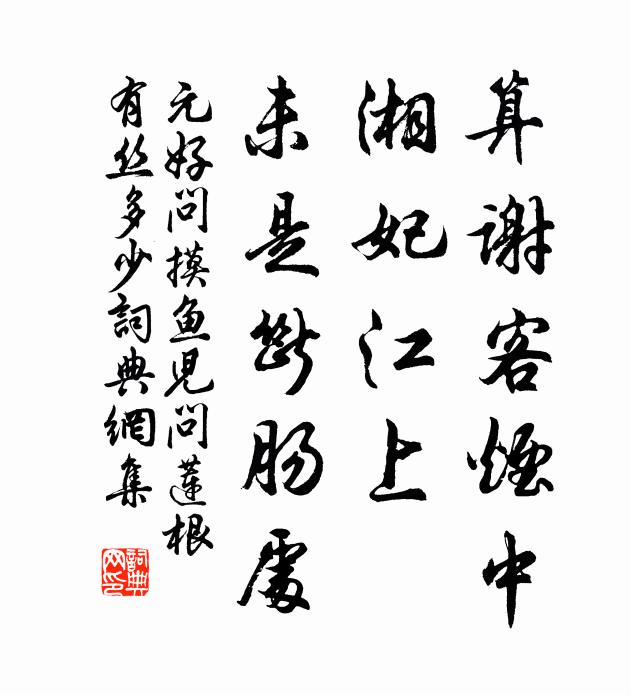 算謝客煙中
湘妃江上
未是斷腸處
元好问摸鱼児问蓮根
有丝多少詞典網集
詞典网印